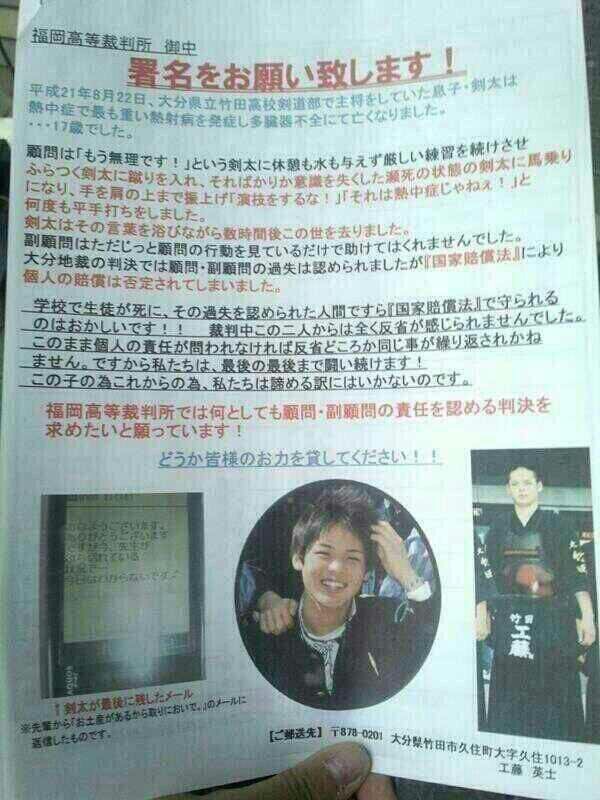 福岡高等裁判所 御中
署名をお願い致します！
平成21年8月22日、大分県立竹田高校剣道部で主将をしていた息子・剣太は
熱中症で最も重い熱射病を発症し多臓器不全にて亡くなりました。
・・・17歳でした。
顧問は「もう無理です！」という剣太に休憩も水も与えず厳しい練習を続けさせ
ふらつく剣太に蹴りを入れ、そればかりか意識を失くした瀕死の状態の剣太に馬乗り
になり、手を肩の上まで振上げ「演技をするな！」「それは熱中症じゃねぇ！」と
何度も平手打ちをしました。
剣太はその言葉を浴びながら数時間後この世を去りました。
副顧問はただじっと顧問の行動を見ているだけで助けてはくれませんでした。
大分地裁の判決では顧問・副顧問の過失は認められましたが『国家賠償法』により
個人の賠償は否定されてしまいました。
学校で生徒が死に、その過失を認められた人間ですら『国家賠償法』で守られる
のはおかしいです！！ 裁判中この二人からは全く反省が感じられませんでした。
このまま個人の責任が問われなければ反省どころか同じ事が繰り返されかね
ません。ですから私たちは、最後の最後まで闘い続けます！
この子の為これからの為、私たちは諦める訳にはいかないのです。
福岡高等裁判所では何としても顧問・副顧問の責任を認める判決を
求めたいと願っています！
どうか皆様のお力を貸してください！！
おはようございます。
ありがとうございます
ですが今、先生が
ぶち切れている
状況で…
今日はわからないです
大竹
竹田
工藤
↑剣太が最後に残したメール
※先輩から「お土産があるから取りにおいで。」のメールに
返信したものです。
【ご郵送先】 〒878-0201 大分県竹田市久住町大字久住1013-2
工藤 英士